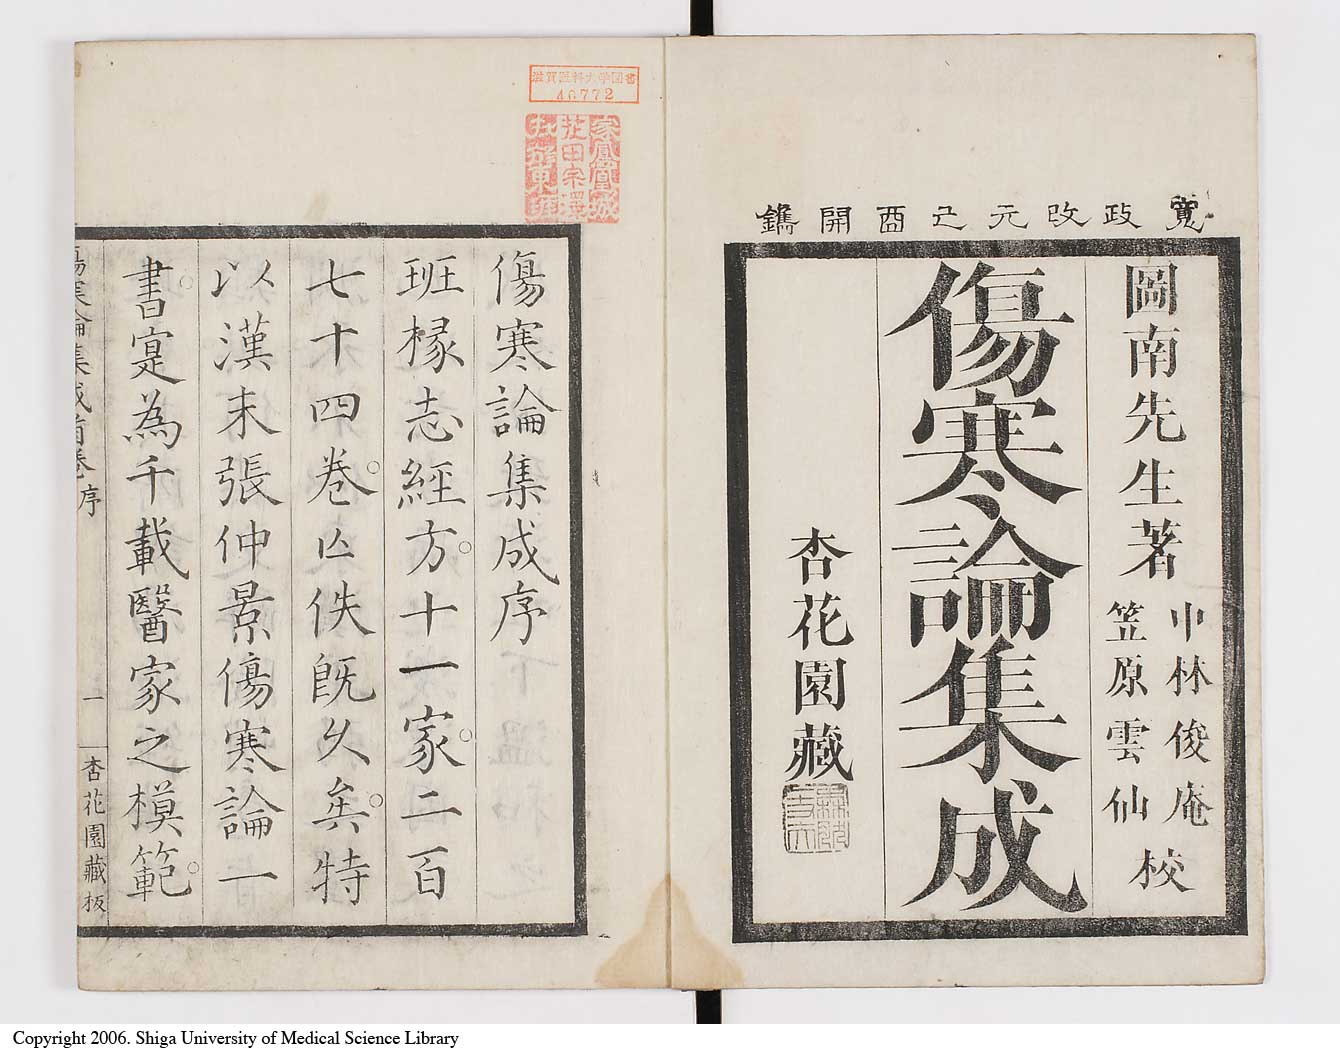 寬政改元己酉開鐫
圖南先生著
中林俊庵
笠原雲仙
校
傷寒論集成
杏花園藏
滋賀医科大学図書
46772
傷寒論集成序
班椽志經方十一家二百
七十四卷亾佚旣久矣特
以漢末張仲景傷寒論一
書寔為千載醫家之模範
傷寒論集成首卷 序
一
杏花園藏板
Copyright 2006. Shiga University of Medical Science Library